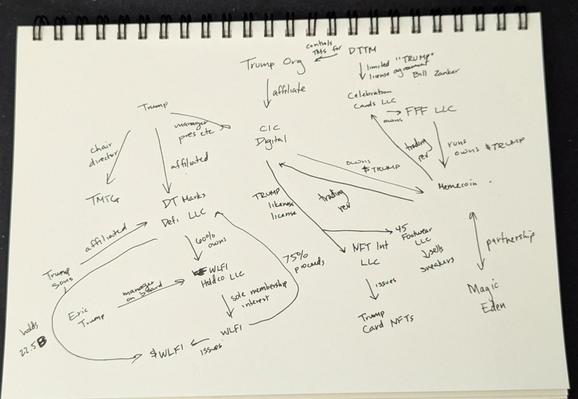 controls
TMs for
Trump Org
DTTM
limited "TRUMP"
license agreement
Bill Zanker
affiliate
Celebration
Cards LLC
owns
FFF LLC
Trump
manager
pres etc
chair
director
affiliated
CIC
Digital
trading
rev
runs
owns $TRUMP
owns
$TRUMP
Memecoin
TMTG
DT Marks
Defi LLC
TRUMP
likeness
license
trading
rev
affiliated
60%
owns
75%
proceeds
NFT Int
LLC
45
Footwear
LLC
sells
sneakers
partnership
Trump
sons
manager
on board
WLFI
Holdco LLC
Eric
Trump
sole membership
interest
issues
Magic
Eden
holds
22.5B
$WLFI
issues
WLFI
Trump
Card NFTs